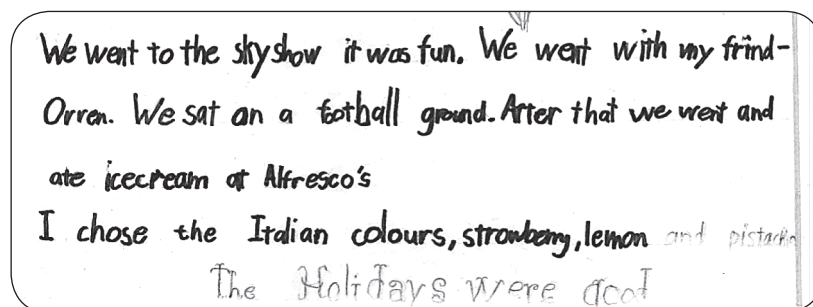 We went to the sky show it was fun. We went with my frind-
Orren. We sat on a football ground. After that we went and
ate icecream at Alfresco's
I chose the Italian colours, strowberry, lemon and pistachio
The Holidays were good